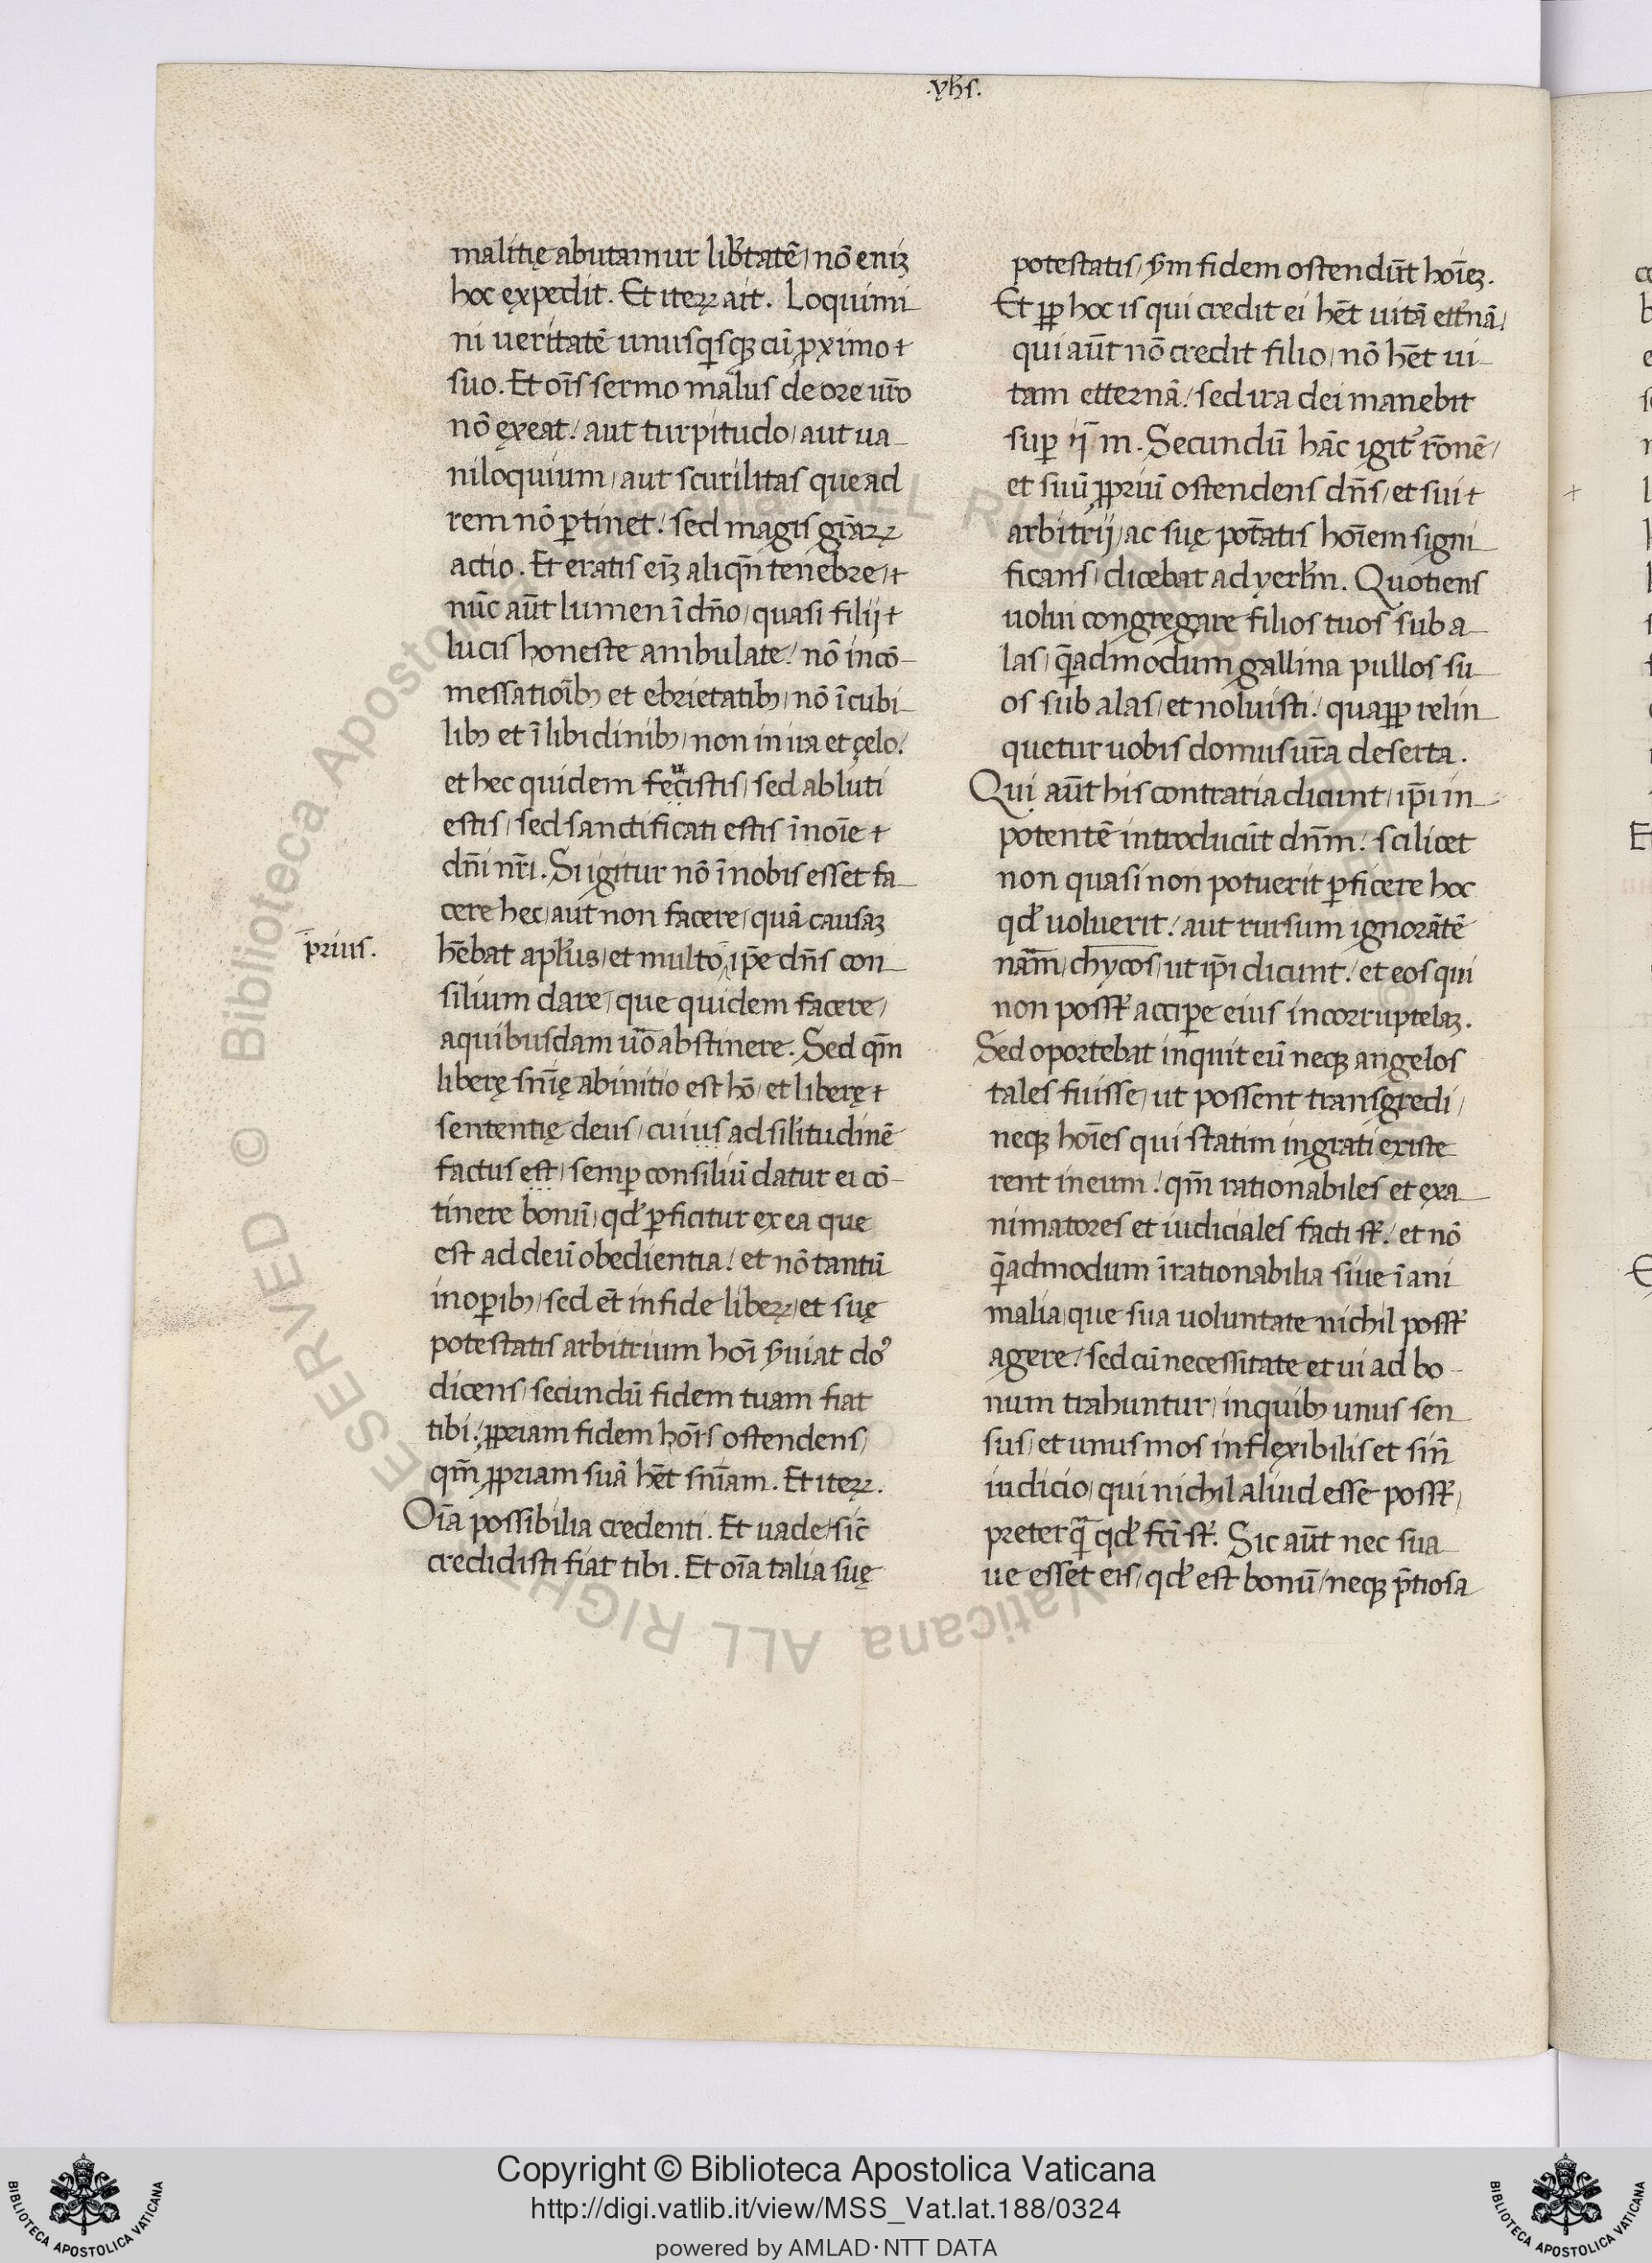 .yħs.
malitię abutamur lib̄tatē/ nō eniʒ
hoc ęxpedit. Et iteꝝ ait. Loquimi
ni ueritatē unusq̇sqꝫ cū ꝓximo
suo. Et oīs sermo malus de ore ur̄o
nō ęxeat! aut turpitudo/ aut ua
niloquium/ aut scurilitas que ad
rem nō ꝑtinet! sed magis gr̄aꝝ
actio. Et eratis eīʒ aliqn̄ tenebre/
nūc aūt lumen ī dn̄o/ quasi filij
lucis honeste ambulate! nō in cō
messatioībꝫ et ebrietatibꝫ/ nō ī cubi
libꝫ et ī libidinibꝫ/ non in ira et çelo!
et hec quidem fecistis/ sed abluti
estis/ sed sanctificati estis ī noīe
dn̄i nr̄i. Si igitur nō ī nobis esset fa
cere hec/ aut non facere/ quā causaʒ
p̄rius.
hēbat apl̄us/ et multo ip̄e dn̄s con
silium dare/ que quidem facere/
a quibusdam u̅o abstinere. Sed qm̄
liberę sn̄ię ab initio est hō/ et liberę
sententię deus/ cuius ad sil̄itudinē
factus est/ semꝑ consiliū datur ei cō
tinere bonū/ qđ ꝑficitur ex ea que
est ad deū obedientia! et nō tantū
in oꝑibꝫ/ sed et̄ in fide libeꝝ/ et suę
potestatis arbitrium hoī s̄uiat do᷒
dicens/ secundū fidem tuam fiat
tibi! ꝓpriam fidem hoīs ostendens/
qm̄ ꝓpriam suā hēt sn̄iam. Et iteꝝ.
Oīa possibilia credenti. Et uade/ sic̄
credidisti fiat tibi. Et oīa talia suę
potestatis/ s̄m fidem ostendūt hoīeʒ.
Et ꝓp hoc is qui credit ei hēt uitā ett̄nā/
qui aūt nō credit filio/ nō hēt ui
tam etternā! sed ira dei manebit
suꝑ ip̄m. Secundū hāc igit᷒ rōnē/
et suū ꝓpriū ostendens dn̄s/ et sui
arbitrij/ ac suę pot̄atis hoīem signi
ficans/ dicebat ad yerl̄m. Quotiens
uolui congregare filios tuos sub a
las/ q̄admodum gallina pullos su
os sub alas/ et noluisti! quaꝓp relin
quetur uobis domus ur̄a deserta.
Qui aūt his contraria dicunt/ ip̄i in
potentē introducūt dn̄m! scilicet
non quasi non potuerit ꝑficere hoc
qđ uoluerit! aut rursum ignorātē
nām/ chycos/ ut ip̄i dicunt! et eos qui
non posst̄ acciꝑe eius incorruptelaʒ.
Sed oportebat inquit eū neqꝫ angelos
tales fuisse/ ut possent transgredi/
neqꝫ hoīes qui statim ingrati existe
rent in eum! qm̄ rationabiles et ęxa
nimatores et iudiciales facti st̄! et nō
q̄admodum īrationabilia siue īani
malia/ que sua uoluntate nichil posst̄
agere! sed cū necessitate et ui ad bo
num trahuntur/ in quibꝫ unus sen
sus/ et unus mos inflexibilis et sin̄
iudicio/ qui nichil aliud esse posst̄/
preterq̄ qđ fc̄i st̄. Sic aūt nec sua
ue esset eis/ qđ est bonū/ neqꝫ p̄tiosa
Copyright © Biblioteca Apostolica Vaticana
http://digi.vatlib.it/view/MSS_Vat.lat.188/0324
powered by AMLAD·NTT DATA